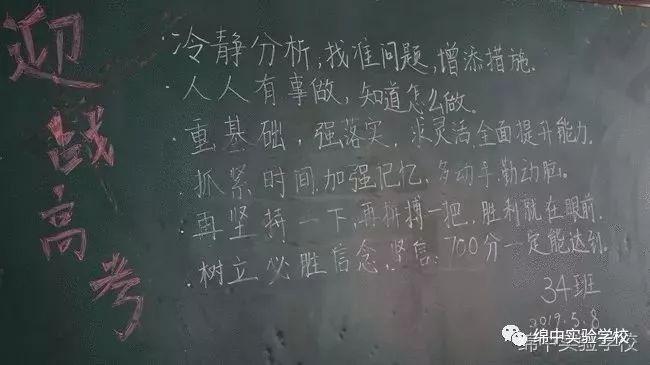 迎战高考
·冷静分析,找准问题,增添措施.
·人人有事做,知道怎么做。
·重基础,强落实,求灵活,全面提升能力.
·抓紧时间,加强记忆,多动手,勤动脑。
·再坚持一下,再拼搏一把,胜利就在眼前.
·树立必胜信念,坚信:700分一定能达到.
34班
2019.5.8
绵中实验学校
绵中实验学校